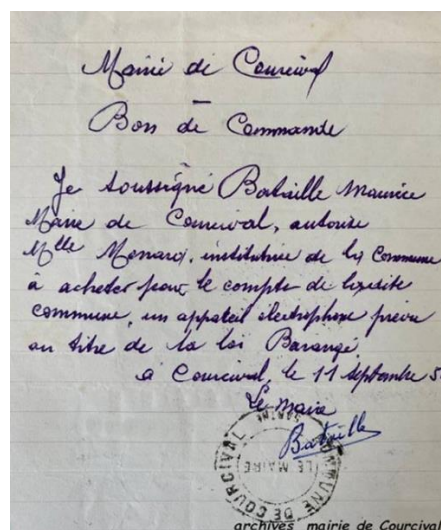 Mairie de Courcival
Bon de Commande
Je soussigné Bataille Maurice
Maire de Courcival, autorise
Mlle Menard, institutrice de la Commune
à acheter pour le compte de ladite
commune, un appareil électrophone prévu
au titre de la loi Barangé.
à Courcival, le 11 septembre 5
Le maire
Bataille
COMMUNE DE COURCIVAL
SARTHE
LE MAIRE
archives mairie de Courcival